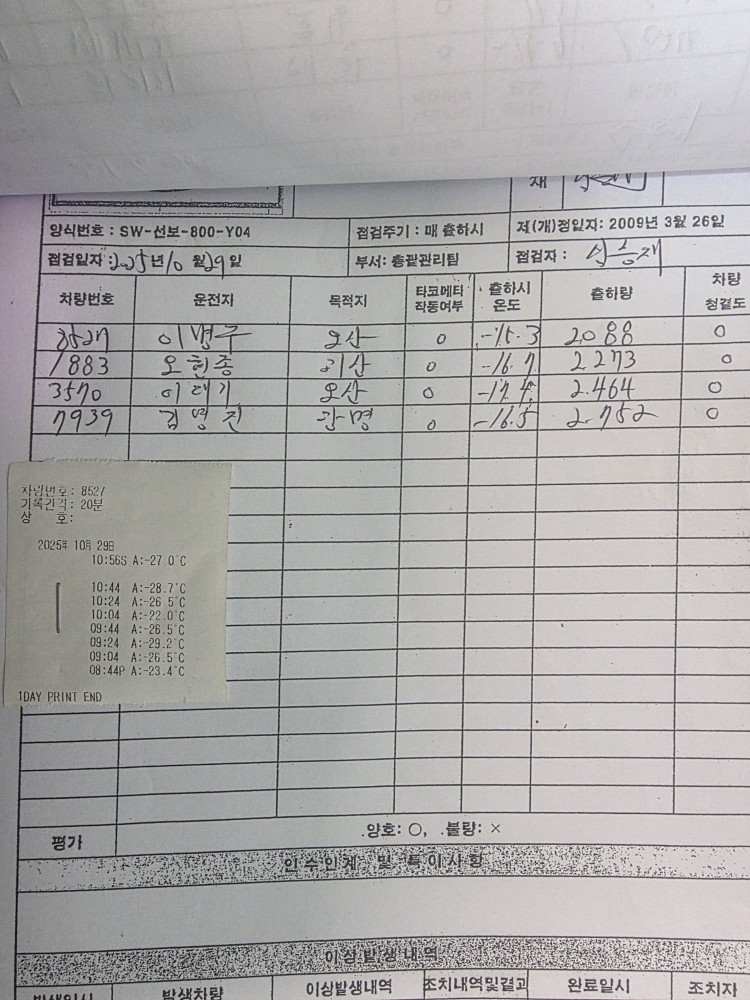 재
양식번호 : SW-선보-800-Y04 점검주기 : 매 출하시 제(개)정일자: 2009년 3월 26일
점검일자 : 2025년 10월 29일 부서: 총괄관리팀 점검자 :
차량번호 운전지 목적지 타코메타 작동여부 출하시 온도 출하량 차량 청결도
3527 이병구 오산 ○ -15.3 2.088 ○
1883 오현종 ○ -16.7 2.273 ○
3570 이래기 오산 ○ -17.4 2.464 ○
7939 김영진 광명 ○ -16.5 2.752 ○
차량번호: 8527
기록간격: 20분
상 호:
2025年 10月 29日
10:56S A:-27.0°C
10:44 A:-28.7°C
10:24 A:-26.5°C
10:04 A:-22.0°C
09:44 A:-26.5°C
09:24 A:-29.2°C
09:04 A:-26.5°C
08:44P A:-23.4°C
1DAY PRINT END
평가 .양호: ○, .불량: ×
인수인계 및 특이사항
이상발생내역
발생일시 발생차량 이상발생내역 조치내역및결과 완료일시 조치자